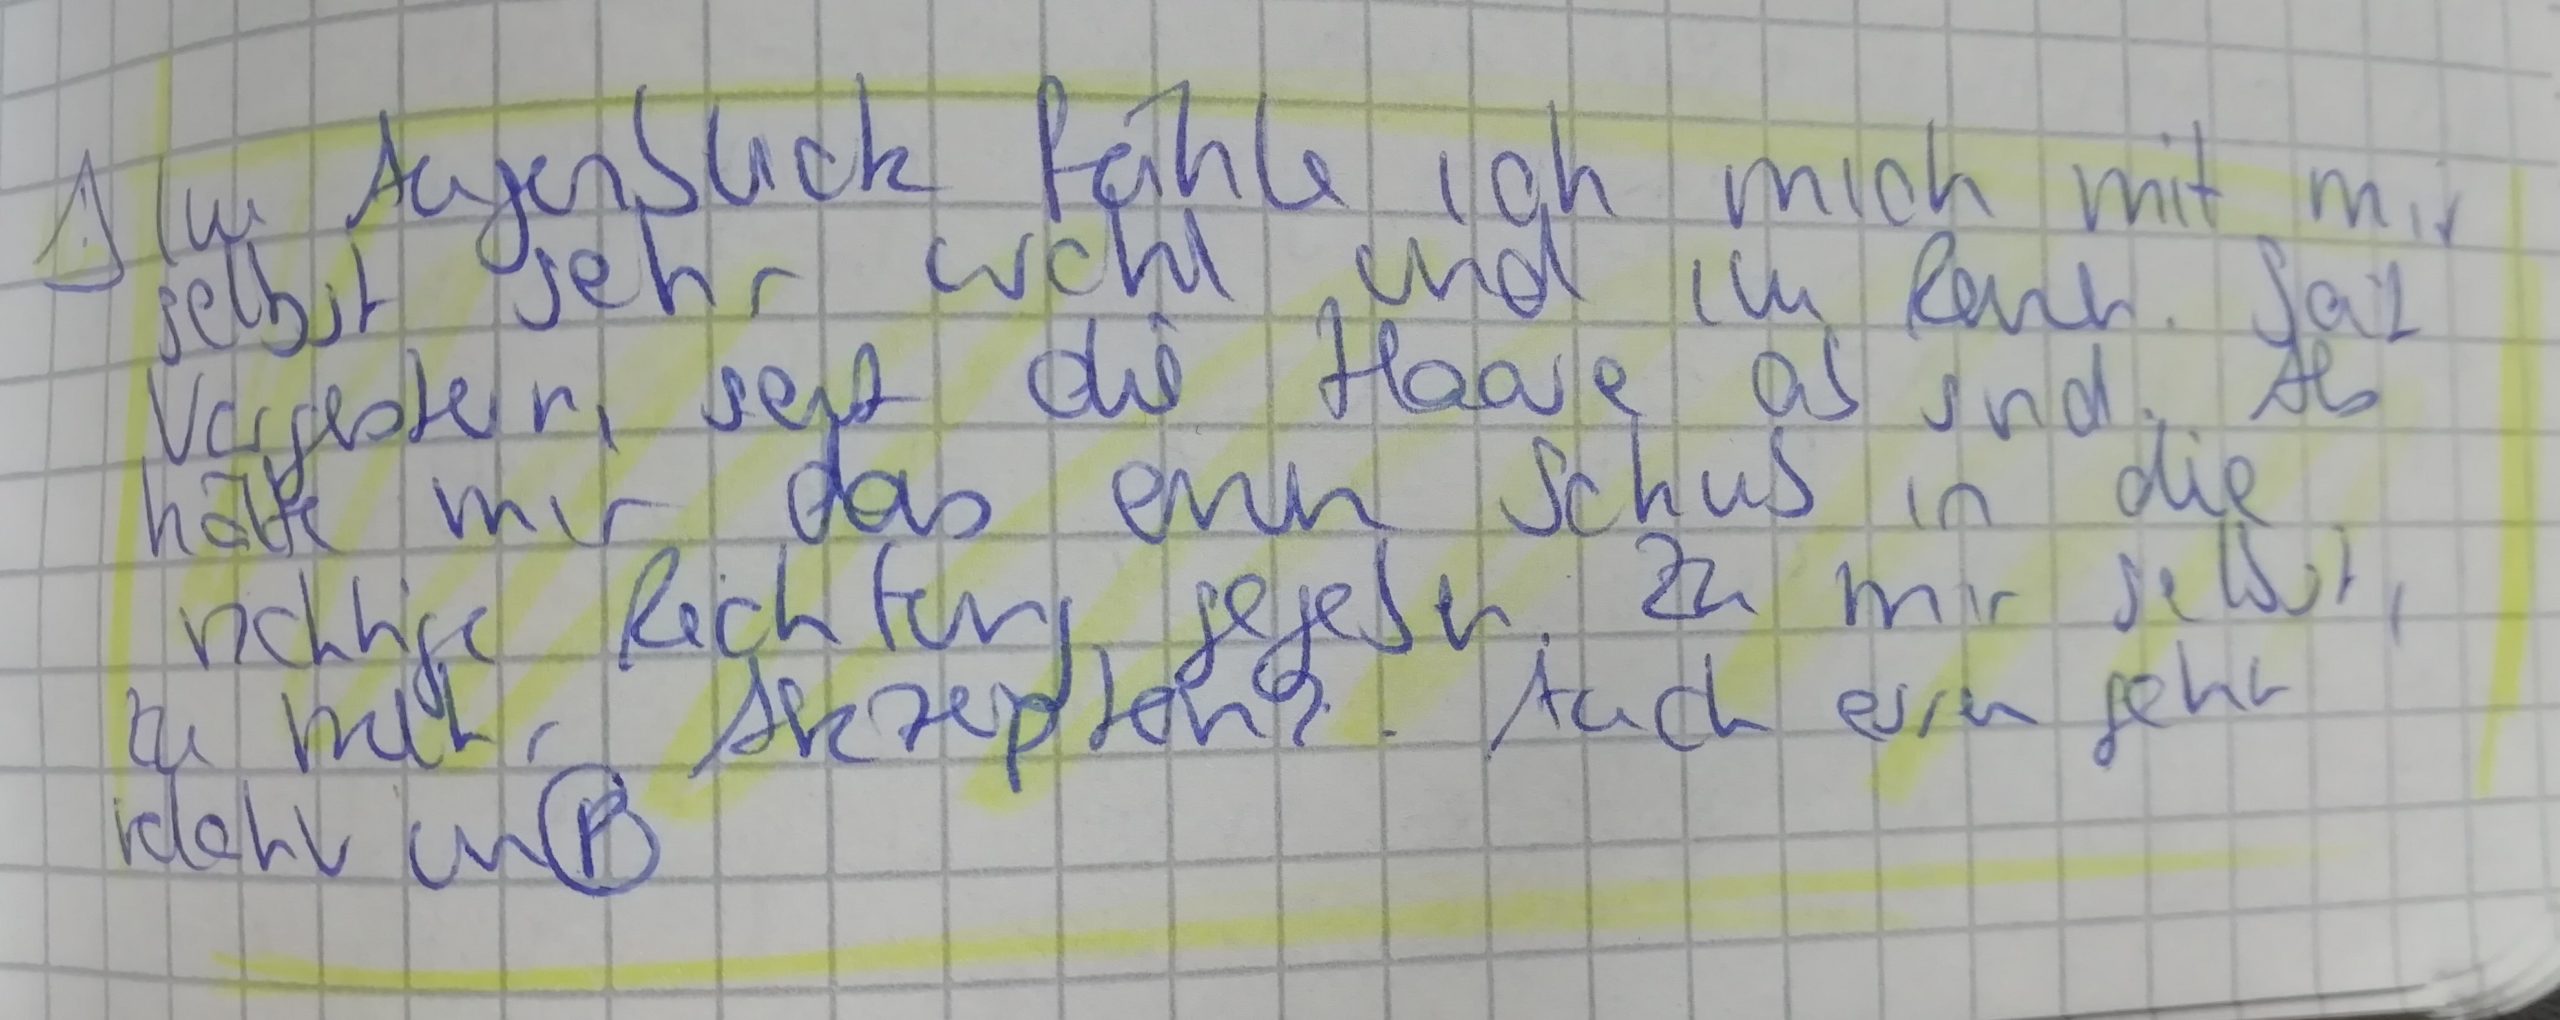 Im Augenblick fühle ich mich mit mir
selbst sehr wohl und im Reinen. Seit
Vorgestern, seit die Haare ab sind. Als
hätte mir das einen Schub in die
richtige Richtung gegeben. Zu mir selbst,
zu mehr Akzeptanz. Auch wenn